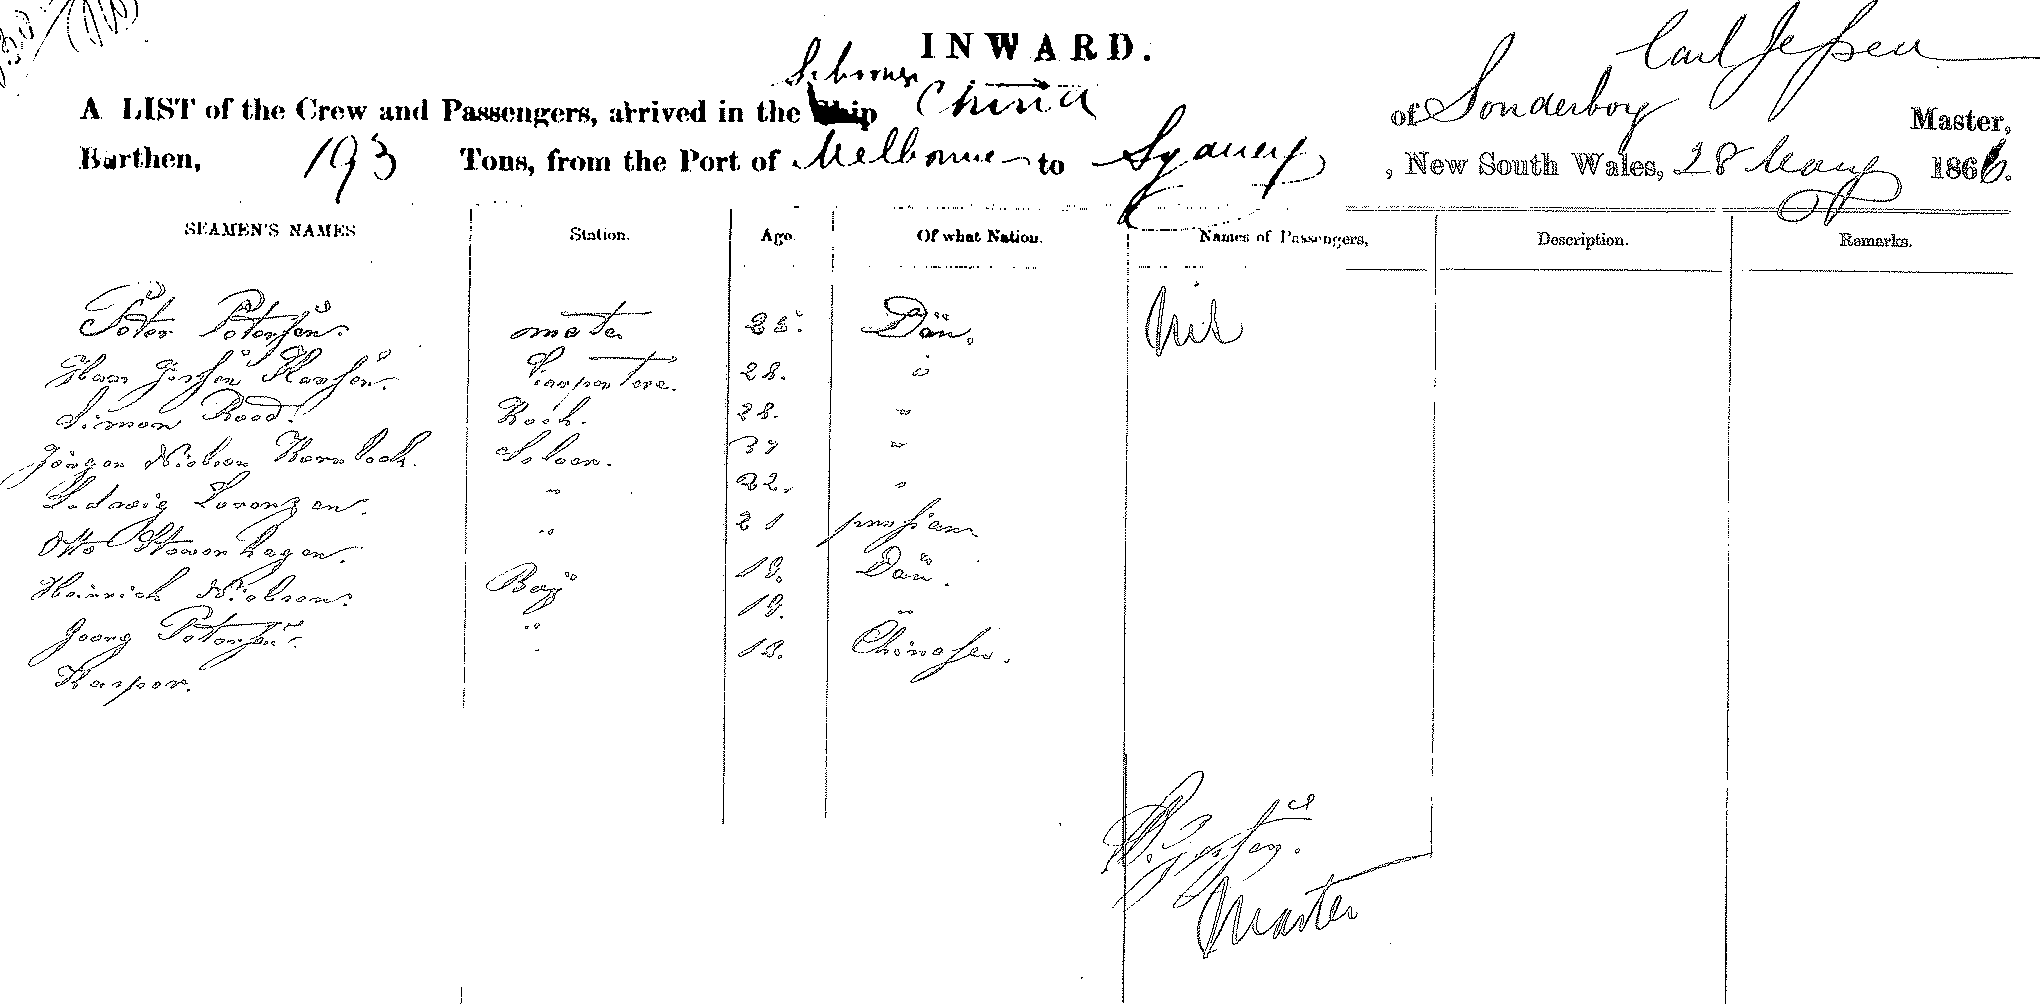 INWARD.
Carl Jessen
Schooner
A LIST of the Crew and Passengers, arrived in the Ship China of Sonderborg Master,
Burthen, 193 Tons, from the Port of Melbourne to Sydney, New South Wales, 28 May 1866.
SEAMEN'S NAMES Station. Age. Of what Nation. Names of Passengers, Description. Remarks.
Peter Petersen. mate 25. Dän. Nil
Hans Jessen Hansen. 28. "
Simon Rood. Koch. 28. "
Jörgen Nielsen "
Ludwig Lorenzen. " 22. "
Otto Stavenhagen. " 21 prussian
Heinrich Nielsen. Boy 19. Dän.
Georg Petersen. " 19. "
Kasper. " 18. Chineser.
Master